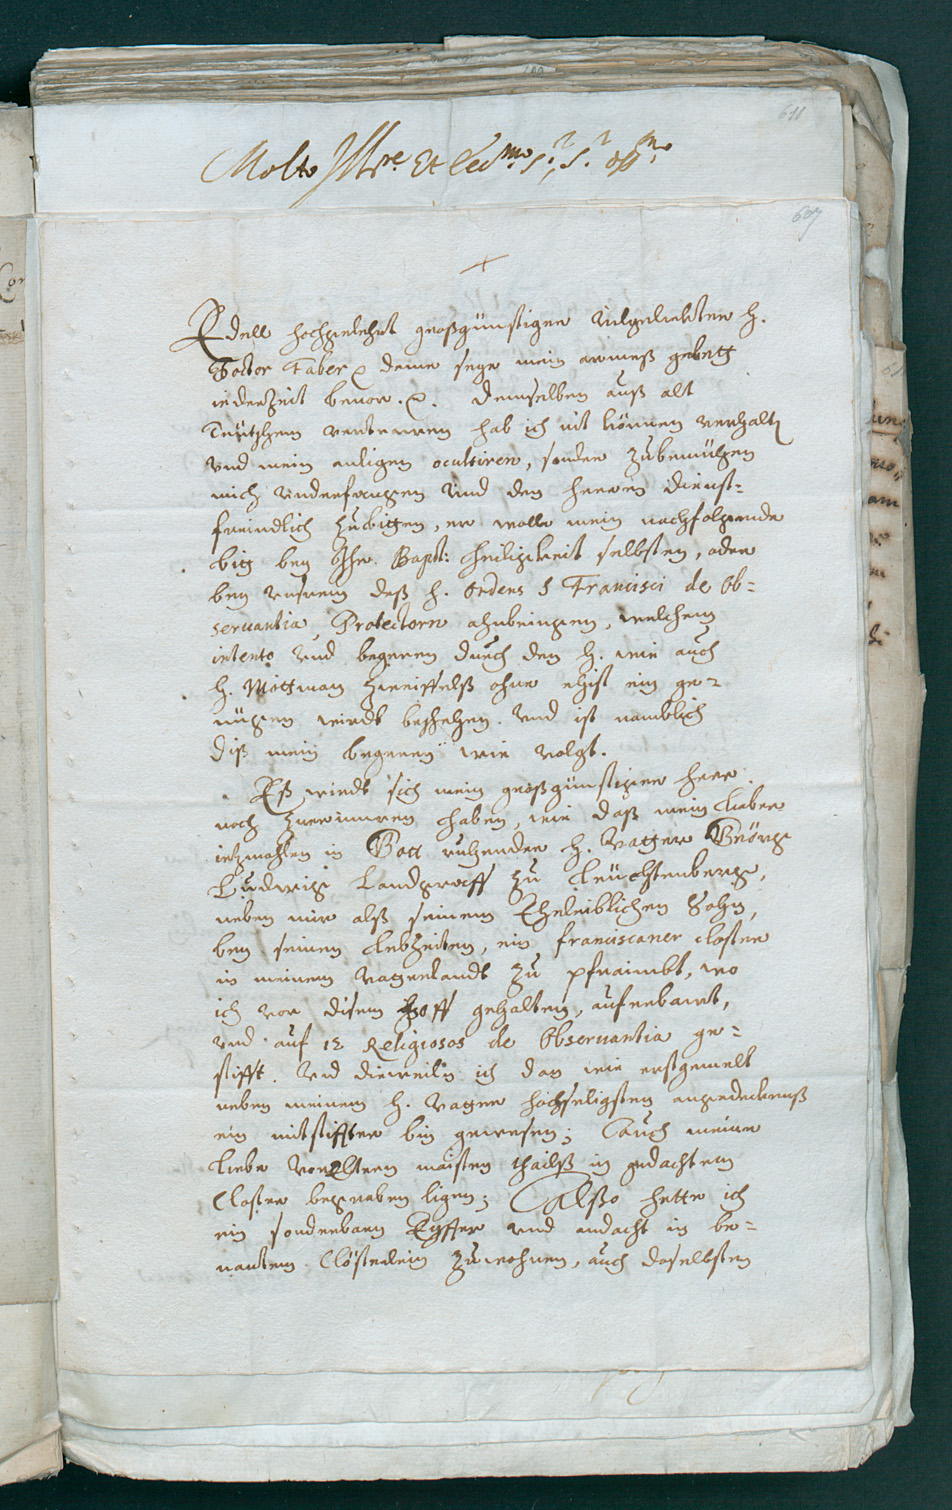 611
Molto Ill.re Et Ecc.mo S.r, S.r oss.mo
607
+
Edell hochgelehrt großgünstiger vilgeliebter H.
Doctor Faber, deme seye mein armeß gebett
iederzeit beuor. Demselben auß alt
Teütschem vertrauen hab ich nit können verhalt
vnd mein anligen occultiren, sonder zubemühen
mich vnderfangen vnd den herren dienst-
freindlich zubitten, er wolle mein nachfolgende
bitt bey Ihr Bäpst: heiligkeit selbsten, oder
bey vnserem deß H. Ordens S Francisci de Ob-
seruantia, Protectorn anbringen, welchem
intento vnd begeren durch den H. wie auch
H. Mottman zweiffelß ohne ehist ein ge-
nügen wirdt beschehen. Vnd ist namblich
diß mein begeren wie volgt.
Eß wirdt sich mein großgünstiger herr
noch zuerinnren haben, wie daß mein lieber
iezmahlen in Gott ruhender H. Vatter Geörg
Ludwig Landgraff zu Leüchtenberg,
neben mir alß seinem Eheleiblichen Sohn,
bey seinen lebzeiten, ein franciscaner closter
in meinem vatterlandt zu pfraimbt, wo
ich vor disem hoff gehalten, auferbawt,
vnd auf 12 Religiosos de Obseruantia ge-
stifft. Vnd dieweiln ich dan wie erstgemelt
neben meinem H. Vatter hochseligsten angedenkenß
ein mitstiffter bin gewesen; Auch meine
liebe vorEltern maisten thailß in gedachtem
Closter begraben ligen; Alßo hette ich
ein sonderbaren Eyffer vnd andacht in be-
nantem Clösterlein zuwohnen, auch daselbsten